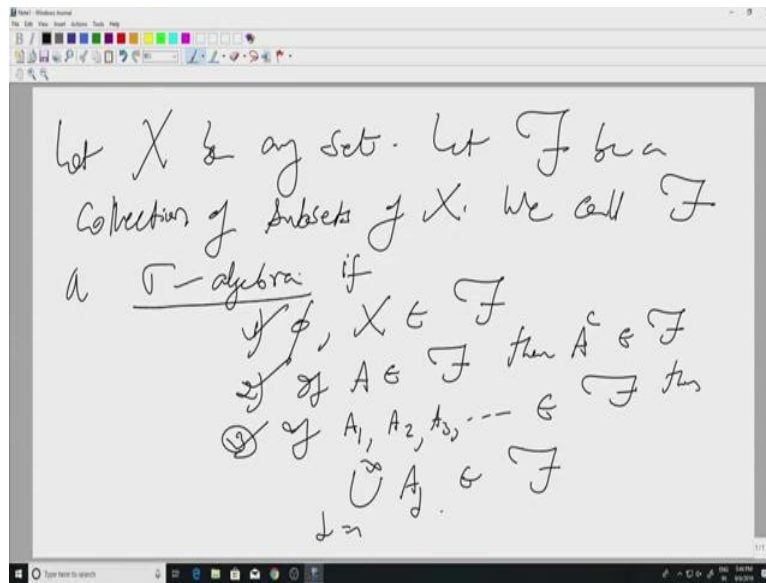 Note1 - Windows Journal
File Edit View Insert Actions Tools Help
Let X be any set. Let ℱ be a
Collection of Subsets of X. We call ℱ
a σ-algebra if
1) ϕ, X ∈ ℱ
2) If A ∈ ℱ then Aᶜ ∈ ℱ
3) If A₁, A₂, A₃, ... ∈ ℱ then
∞
⋃ Aⱼ ∈ ℱ.
1/1
Type here to search